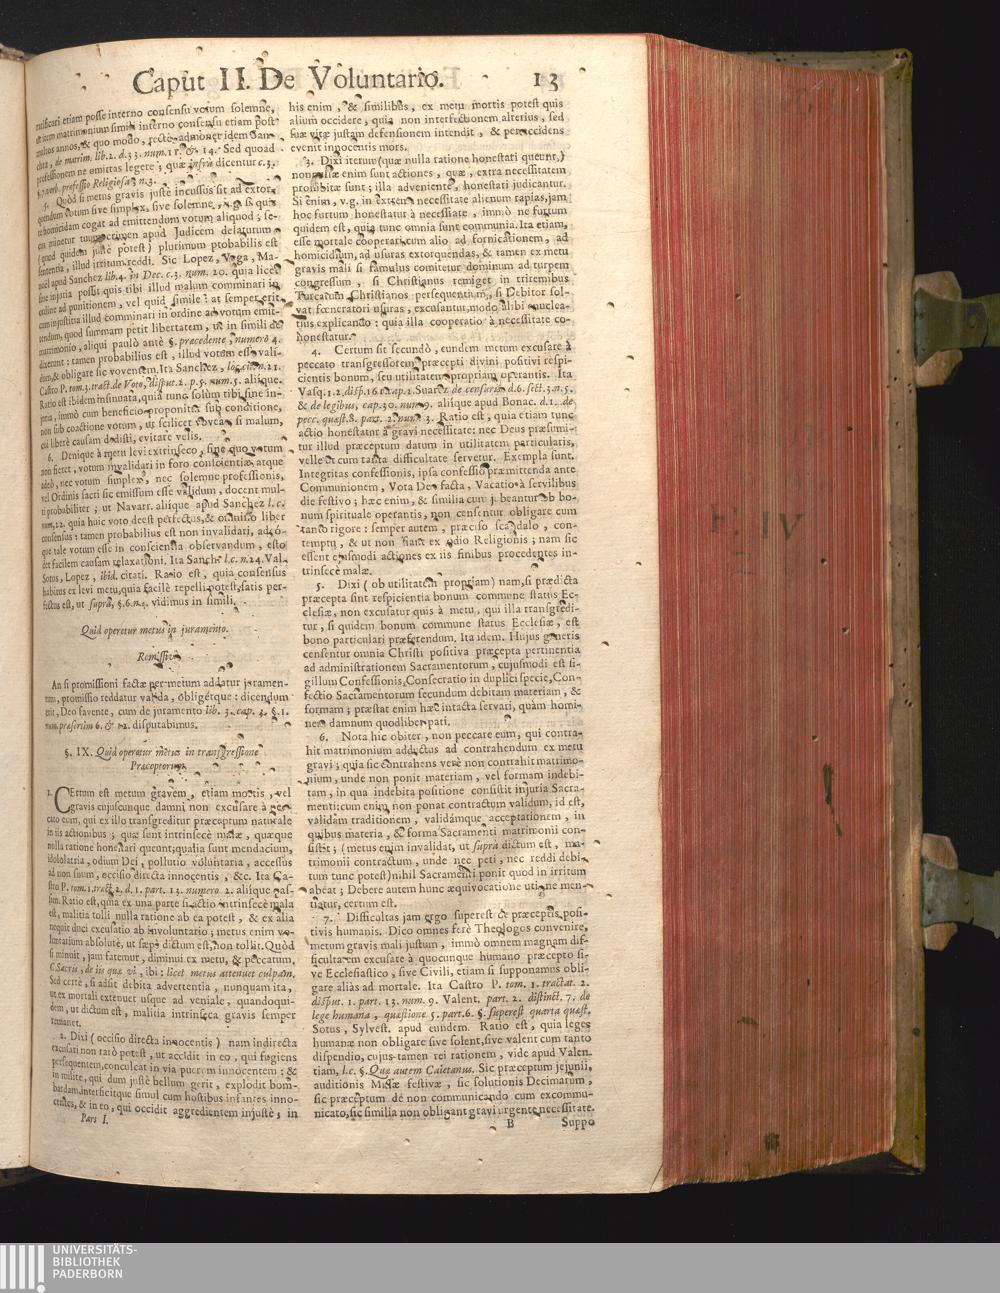 Caput II. De Voluntario. 13
ratificari etiam posse interno consensu votum solemne,
est item matrimonium simili interno consensu etiam post
multos annos, & quo modo, rectè admonet idem San-
chez, de matrim. lib. 2. d. 33. num. 11. & 14. Sed quoad
professionem ne omittas legere; quæ infrà dicentur c. 3.
verb. professio Religiosa, n. 3.
5. Quòd si metus gravis justè incussus sit ad extor-
quendum votum sive simplex, sive solemne, v.g. si quis
te homicidam cogat ad emittendum votum aliquod; se-
cus minetur tuum crimen apud Judicem delaturum
(quod quidem justè potest) plurimum probabilis est
sententia, illud irritum reddi. Sic Lopez, Vega, Ma-
nuel apud Sanchez lib. 4. in Dec. c. 3. num. 20. quia licet
sine injuria possit quis tibi illud malum comminari in
ordine ad punitionem, vel quid simile; at semper erit
cum injustitia illud comminari in ordine ad votum emit-
tendum, quod summam petit libertatem, ut in simili de
matrimonio, aliqui paulò antè §. præcedente, numero 4.
dixerunt: tamen probabilius est, illud votum esse vali-
dum, & obligare sic voventem. Ita Sanchez, loc. cit. n. 21.
Castro P. tom. 3. tract. de Voto, disput. 2. p. 5. num. 5. aliique.
Ratio est ibidem insinuata, quia tunc solùm tibi sine in-
juria, immò cum beneficio proponitur sub conditione,
non sub coactione votum, ut scilicet voveas si malum,
cui liberè causam dedisti, evitare velis.
6. Denique à metu levi extrinseco, sine quo votum
non fieret, votum invalidari in foro conscientiæ, atque
adeò, nec votum simplex, nec solemne professionis,
vel Ordinis sacri sic emissum esse validum, docent mul-
ti probabiliter; ut Navarr. aliique apud Sanchez l. c.
num. 22. quia huic voto deest perfectus, & omnino liber
consensus: tamen probabilius est non invalidari, adeó-
que tale votum esse in conscientia observandum, esto
det facilem causam relaxationi. Ita Sanch. l. c. n. 24. Val.
Sotus, Lopez, ibid. citati. Ratio est, quia consensus
habitus ex levi metu, quia facilè repelli potest, satis per-
fectus est, ut suprà, §. 6. n. 4. vidimus in simili.
Quid operetur metus in juramento.
Remissivè.
An si promissioni factæ per metum addatur juramen-
tum, promissio reddatur valida, obligétque: dicendum
erit, Deo favente, cum de juramento lib. 3. cap. 4. §. 1.
num. præsertim 6. & 12. disputabimus.
§. IX. Quid operetur metus in transgressione
Præceptorum.
1. CErtum est metum gravem, etiam mortis, vel
gravis cujuscunque damni non excusare à pec-
cato eum, qui ex illo transgreditur præceptum naturale
in iis actionibus; quæ sunt intrinsecè malæ, quæque
nulla ratione honestari queunt; qualia sunt mendacium,
idololatria, odium Dei, pollutio voluntaria, accessus
ad non suum, occisio directa innocentis, &c. Ita Ca-
stro P. tom. 1. tract. 2. d. 1. part. 13. numero 2. aliique pas-
sim. Ratio est, quia ex una parte si actio intrinsecè mala
est, malitia tolli nulla ratione ab ea potest, & ex alia
nequit duci excusatio ab involuntario; metus enim vo-
luntarium absolutè, ut sæpè dictum est, non tollit. Quòd
si minuit, jam fatemur, diminui ex metu, & peccatum,
C. Sacris, de iis quæ vi, ibi: licet metus attenuet culpam.
Sed certè, si adsit debita advertentia, nunquam ita,
ut ex mortali extenuet usque ad veniale, quandoqui-
dem, ut dictum est, malitia intrinseca gravis semper
remanet.
2. Dixi (occisio directa innocentis) nam indirecta
excusari non rarò potest, ut accidit in eo, qui fugiens
persequentem, conculcat in via puerum innocentem: &
in milite, qui dum justè bellum gerit, explodit bom-
bardam, interficitque simul cum hostibus infantes inno-
centes, & in eo, qui occidit aggredientem injustè; in
Pars I.
his enim, & similibus, ex metu mortis potest quis
alium occidere, quia non interfectionem alterius, sed
suæ vitæ justam defensionem intendit, & per accidens
evenit innocentis mors.
3. Dixi iterum (quæ nulla ratione honestari queunt,)
nonnullæ enim sunt actiones, quæ, extra necessitatem
prohibitæ sunt; illa adveniente, honestari judicantur.
Si enim, v.g. in extrema necessitate alienum rapias, jam
hoc furtum honestatur à necessitate, immò ne furtum
quidem est, quia tunc omnia sunt communia. Ita etiam,
esse mortale cooperari cum alio ad fornicationem, ad
homicidium, ad usuras extorquendas, & tamen ex metu
gravis mali si famulus comitetur dominum ad turpem
congressum, si Christianus remiget in triremibus
Turcarum Christianos persequentium, si Debitor sol-
vat fœneratori usuras, excusantur, modo alibi enuclea-
tius explicando: quia illa cooperatio à necessitate co-
honestatur.
4. Certum sit secundò, eundem metum excusare à
peccato transgressorem præcepti divini positivi respi-
cientis bonum, seu utilitatem propriam operantis. Ita
Vasq. 1. 2. disp. 161. cap. 2. Suarez de censuris d. 6. sect. 3. n. 5.
& de legibus, cap. 30. num. 9. aliique apud Bonac. d. 1. de
pecc. quæst. 8. part. 2. num. 3. Ratio est, quia etiam tunc
actio honestatur à gravi necessitate: nec Deus præsumi-
tur illud præceptum datum in utilitatem particularis,
velle ut cum tanta difficultate servetur. Exempla sunt.
Integritas confessionis, ipsa confessio præmittenda ante
Communionem, Vota Deo facta, Vacatio à servilibus
die festivo; hæc enim, & similia cum jubeantur ob bo-
num spirituale operantis, non censentur obligare cum
tanto rigore: semper autem, præciso scandalo, con-
temptu, & ut non fiant ex odio Religionis; nam sic
essent ejusmodi actiones ex iis finibus procedentes in-
trinsecè malæ.
5. Dixi (ob utilitatem propriam) nam, si prædicta
præcepta sint respicientia bonum commune status Ec-
clesiæ, non excusatur quis à metu, qui illa transgredi-
tur, si quidem bonum commune status Ecclesiæ, est
bono particulari præferendum. Ita idem. Hujus generis
censentur omnia Christi positiva præcepta pertinentia
ad administrationem Sacramentorum, cujusmodi est si-
gillum Confessionis, Consecratio in duplici specie, Con-
fectio Sacramentorum secundum debitam materiam, &
formam; præstat enim hæc intacta servari, quàm homi-
nem damnum quodlibet pati.
6. Nota hic obiter, non peccare eum, qui contra-
hit matrimonium adductus ad contrahendum ex metu
gravi; quia sic contrahens verè non contrahit matrimo-
nium, unde non ponit materiam, vel formam indebi-
tam, in qua indebita positione consistit injuria Sacra-
menti: cum enim non ponat contractum validum, id est,
validam traditionem, validámque acceptationem, in
quibus materia, & forma Sacramenti matrimonii con-
sistit; (metus enim invalidat, ut suprà dictum est, ma-
trimonii contractum, unde nec peti, nec reddi debi-
tum tunc potest) nihil Sacramenti ponit quod in irritum
abeat; Debere autem hunc æquivocatione uti, ne men-
tiatur, certum est.
7. Difficultas jam ergo superest de præceptis posi-
tivis humanis. Dico omnes ferè Theologos convenire,
metum gravis mali justum, immò omnem magnam dif-
ficultatem excusare à quocunque humano præcepto si-
ve Ecclesiastico, sive Civili, etiam si supponamus obli-
gare aliàs ad mortale. Ita Castro P. tom. 1. tractat. 2.
disput. 1. part. 13. num. 9. Valent. part. 2. distinct. 7. de
lege humana, quæstione 5. part. 6. §. superest quarta quæst.
Sotus, Sylvest. apud eundem. Ratio est, quia leges
humanæ non obligare sive solent, sive valent cum tanto
dispendio, cujus tamen rei rationem, vide apud Valen-
tiam, l. c. §. Quæ autem Caietanus. Sic præceptum jejunii,
auditionis Missæ festivæ, sic solutionis Decimarum,
sic præceptum de non communicando cum excommu-
nicato, sic similia non obligant gravi urgente necessitate.
B Suppo
UNIVERSITÄTS-
BIBLIOTHEK
PADERBORN